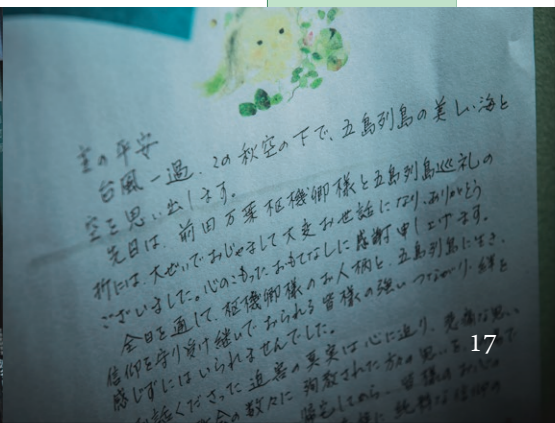 主の平安
台風一過、この秋空の下で、五島列島の美しい海と
空を思い出します。
先日は、前田万葉枢機卿様と五島列島巡礼の
折には、大ぜいでおじゃまして大変お世話になり、ありがとう
ございました。心のこもったおもてなしに感謝申し上げます。
全日を通して、枢機卿様のお人柄と、五島列島に生き、
信仰を守り受け継いでおられる皆様の強いつながり・絆を
感じずにはいられませんでした。
お話くださった迫害の真実は心に迫り、
の数々に殉教された方々の思いを
17